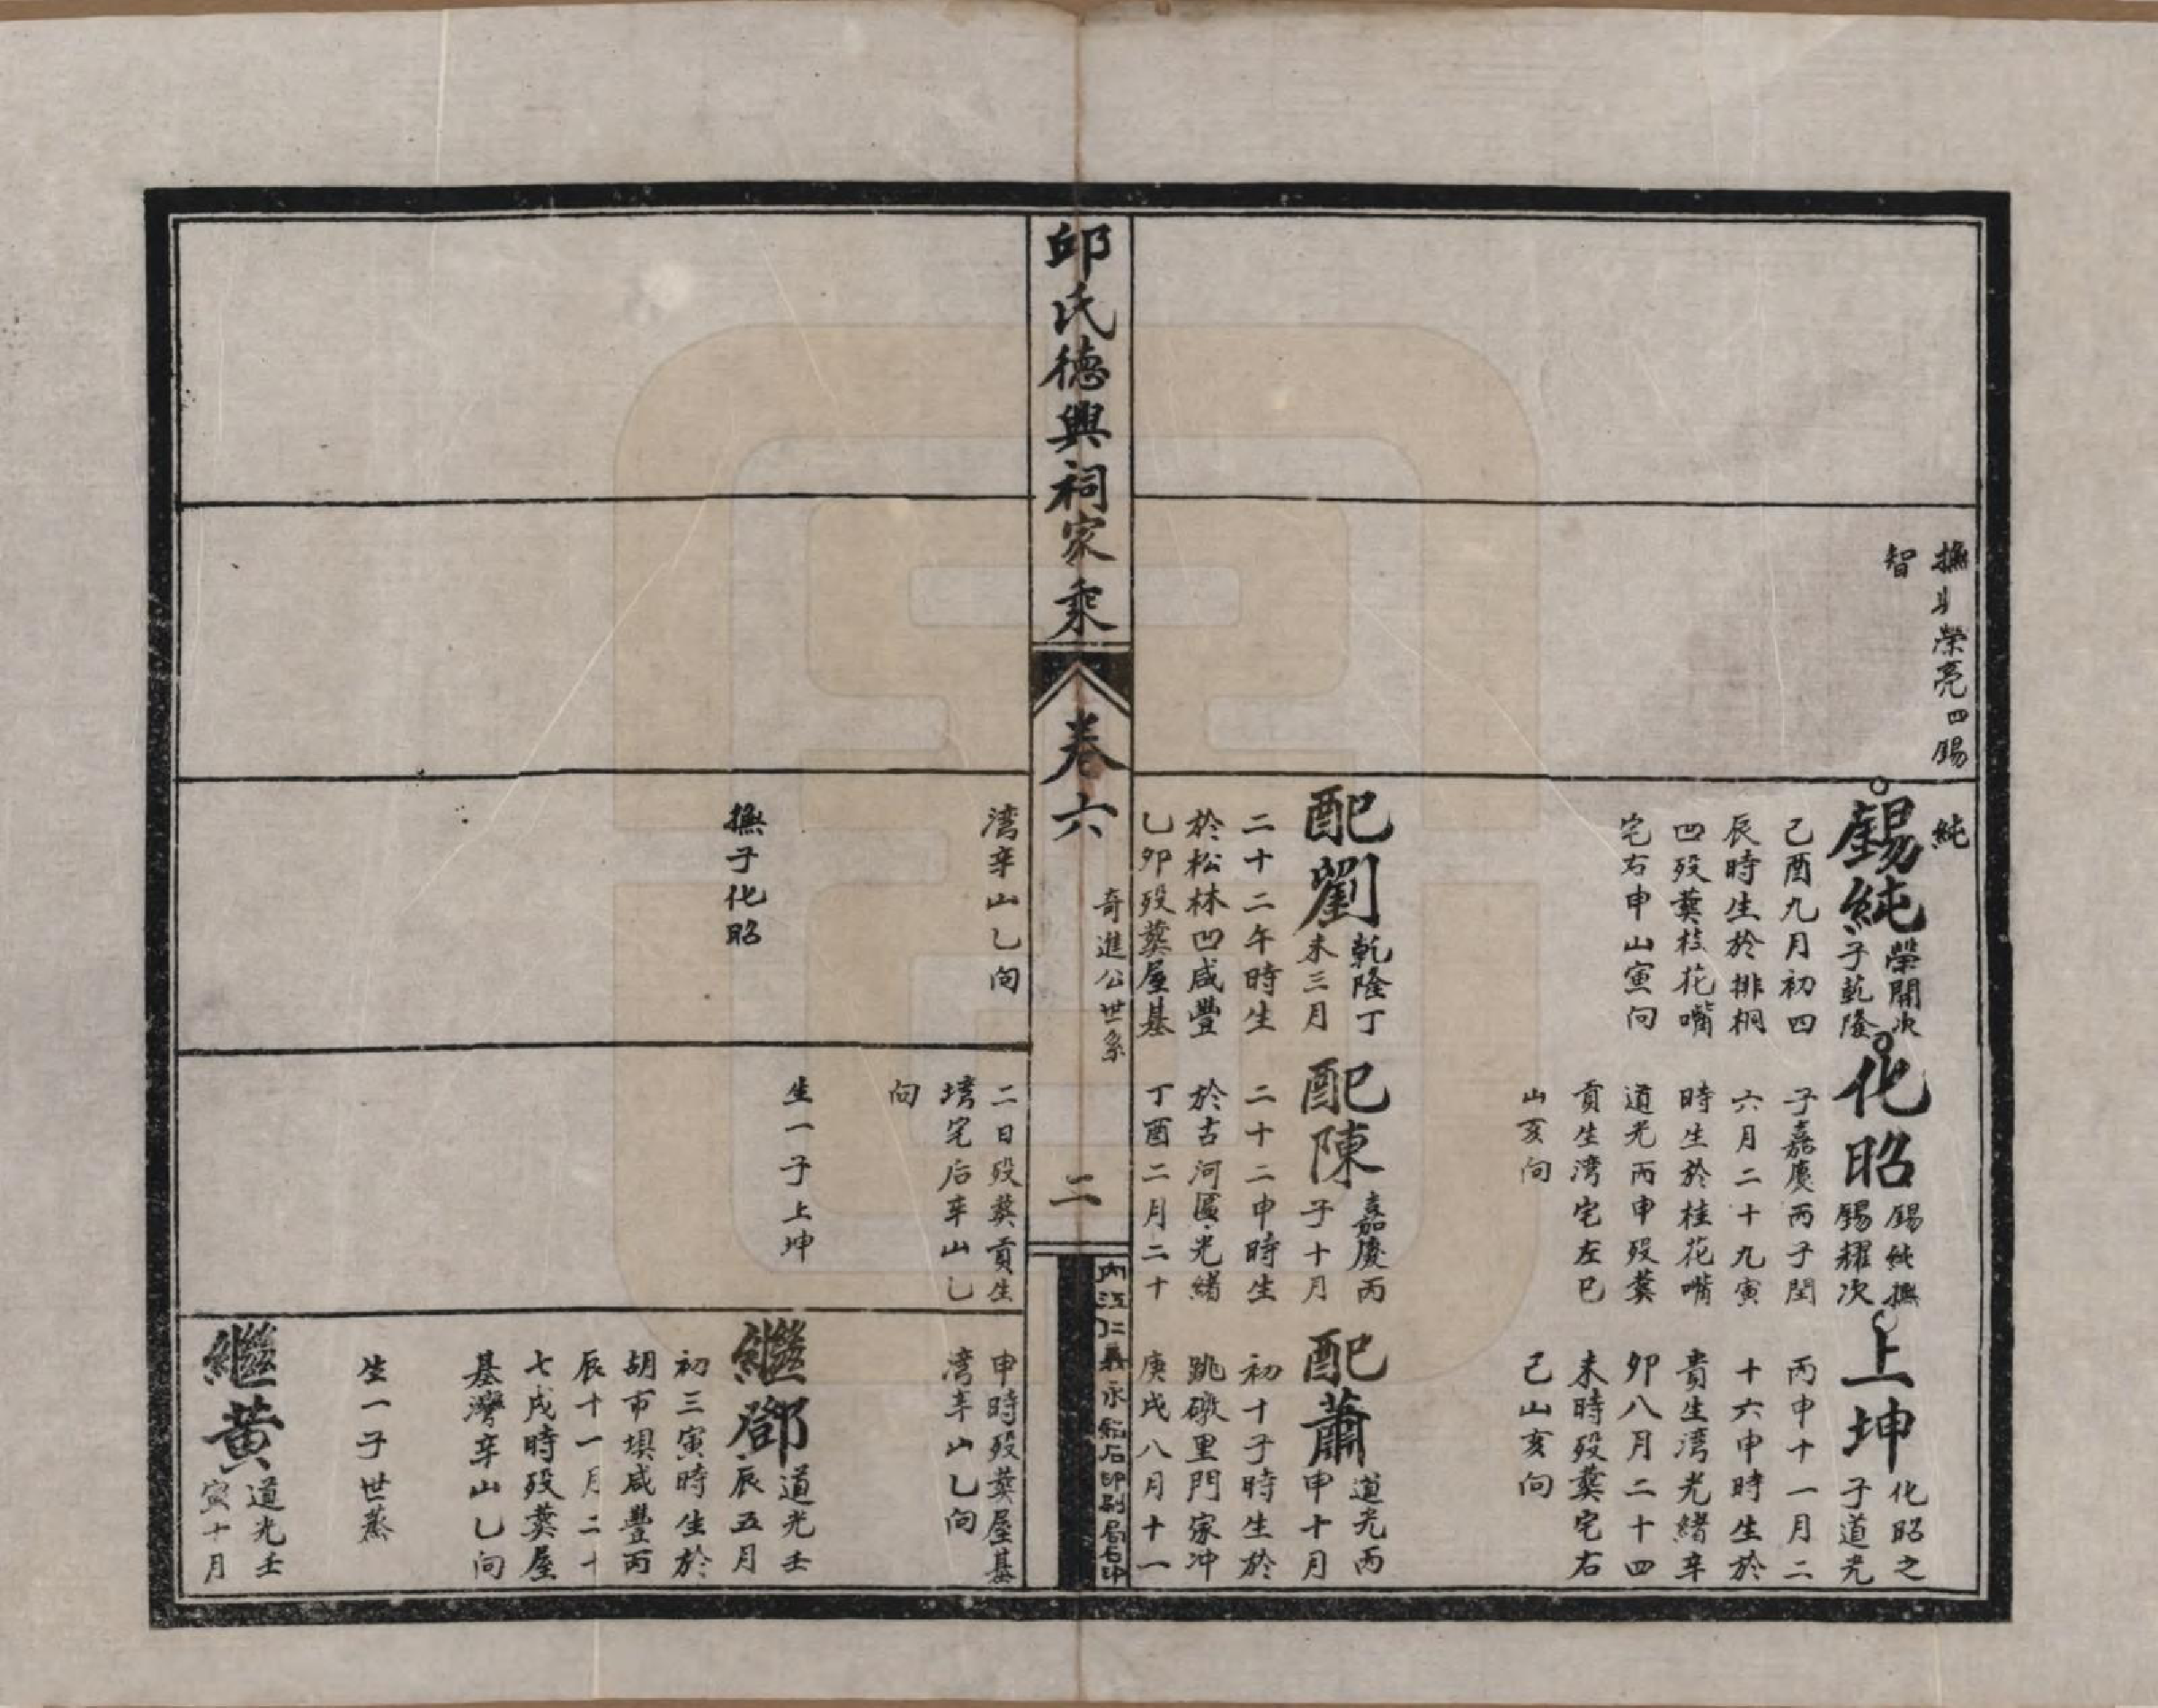 撫爿榮亮四錫
智
純
錫純
榮開次
子乾隆
己酉九月初四
辰時生於排桐
凹歿葬枝花嘴
宅右申山寅向
配劉
乾隆丁
未三月
二十二午時生
於松林凹咸豐
乙卯歿葬屋基
化昭
錫純撫
錫耀次
子嘉慶丙子閏
六月二十九寅
時生於桂花嘴
道光丙申歿葬
貢生湾宅左巳
山亥向
配陳
嘉慶丙
子十月
二十二申時生
於古河匾光緒
丁酉二月二十
上坤
化昭之
子道光
丙申十一月二
十六申時生於
貴生湾光緒辛
卯八月二十四
未時歿葬宅右
己山亥向
配蕭
道光丙
申十月
初十子時生於
跳礅里門家冲
庚戌八月十一
邱氏德興祠家乘
卷六
奇進公世系
二
內江仁義永紙石印刷局石印
湾辛山乙向
撫子化昭
二日歿葬貢生
塆宅后辛山乙
向
生一子上坤
申時歿葬屋基
湾辛山乙向
繼鄧
道光壬
辰五月
初三寅時生於
胡市垻咸豐丙
辰十一月二十
七戌時歿葬屋
基灣辛山乙向
生一子世蒸
繼黃
道光壬
寅十月